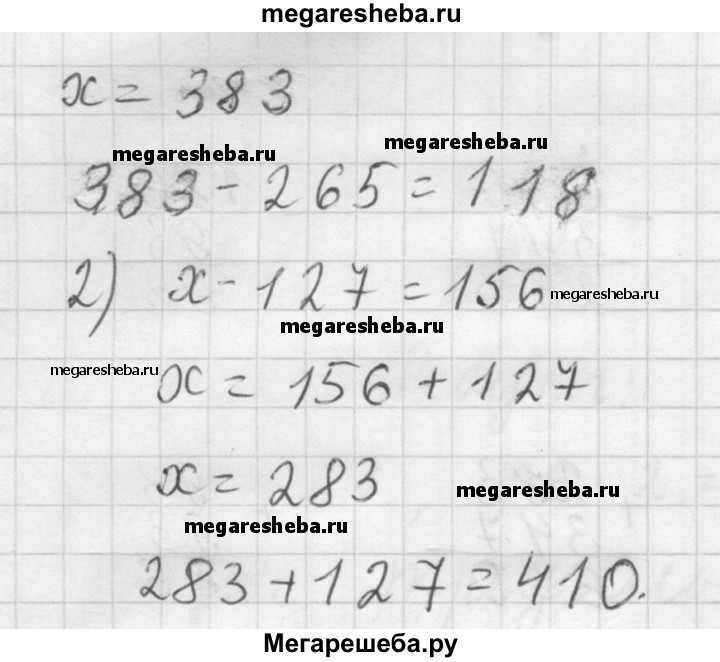 megaresheba.ru
x = 383
megaresheba.ru megaresheba.ru
383 - 265 = 118
2) x - 127 = 156 megaresheba.ru
megaresheba.ru
megaresheba.ru x = 156 + 127
x = 283
megaresheba.ru
megaresheba.ru
283 + 127 = 410.
Мегарешеба.ру